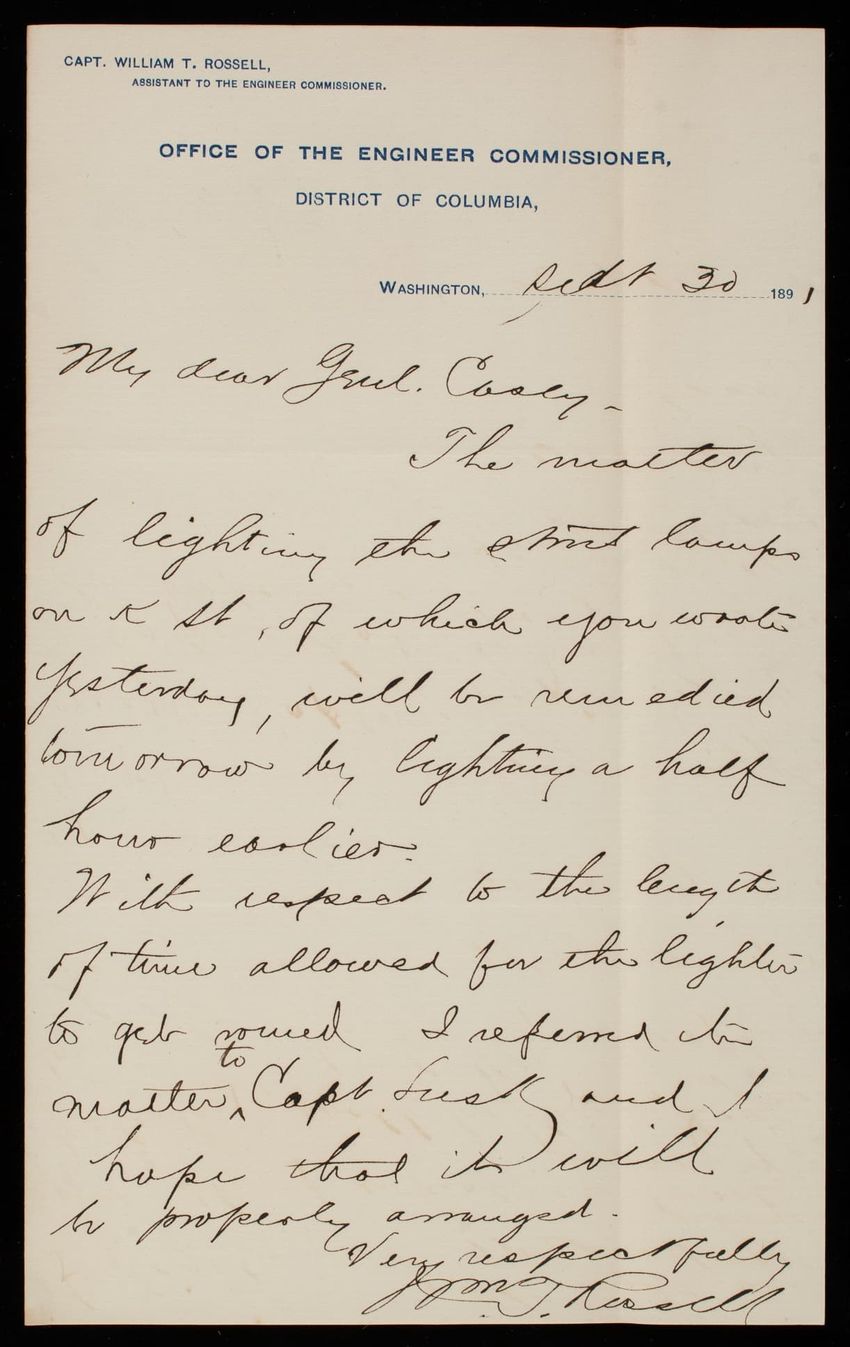 CAPT. WILLIAM T. ROSSELL,
ASSISTANT TO THE ENGINEER COMMISSIONER.
OFFICE OF THE ENGINEER COMMISSIONER,
DISTRICT OF COLUMBIA,
WASHINGTON, Sept 30 1891
My dear Genl. Casey -
The matter
of lighting the street lamps
on K St, of which you wrote
yesterday, will be remedied
tomorrow by lighting a half
hour earlier.
With respect to the length
of time allowed for the lighter
to get round I referred the
to
matter ^ Capt. Lusk and I
hope that it will
be properly arranged.
Very respectfully
Wm. T. Rossell